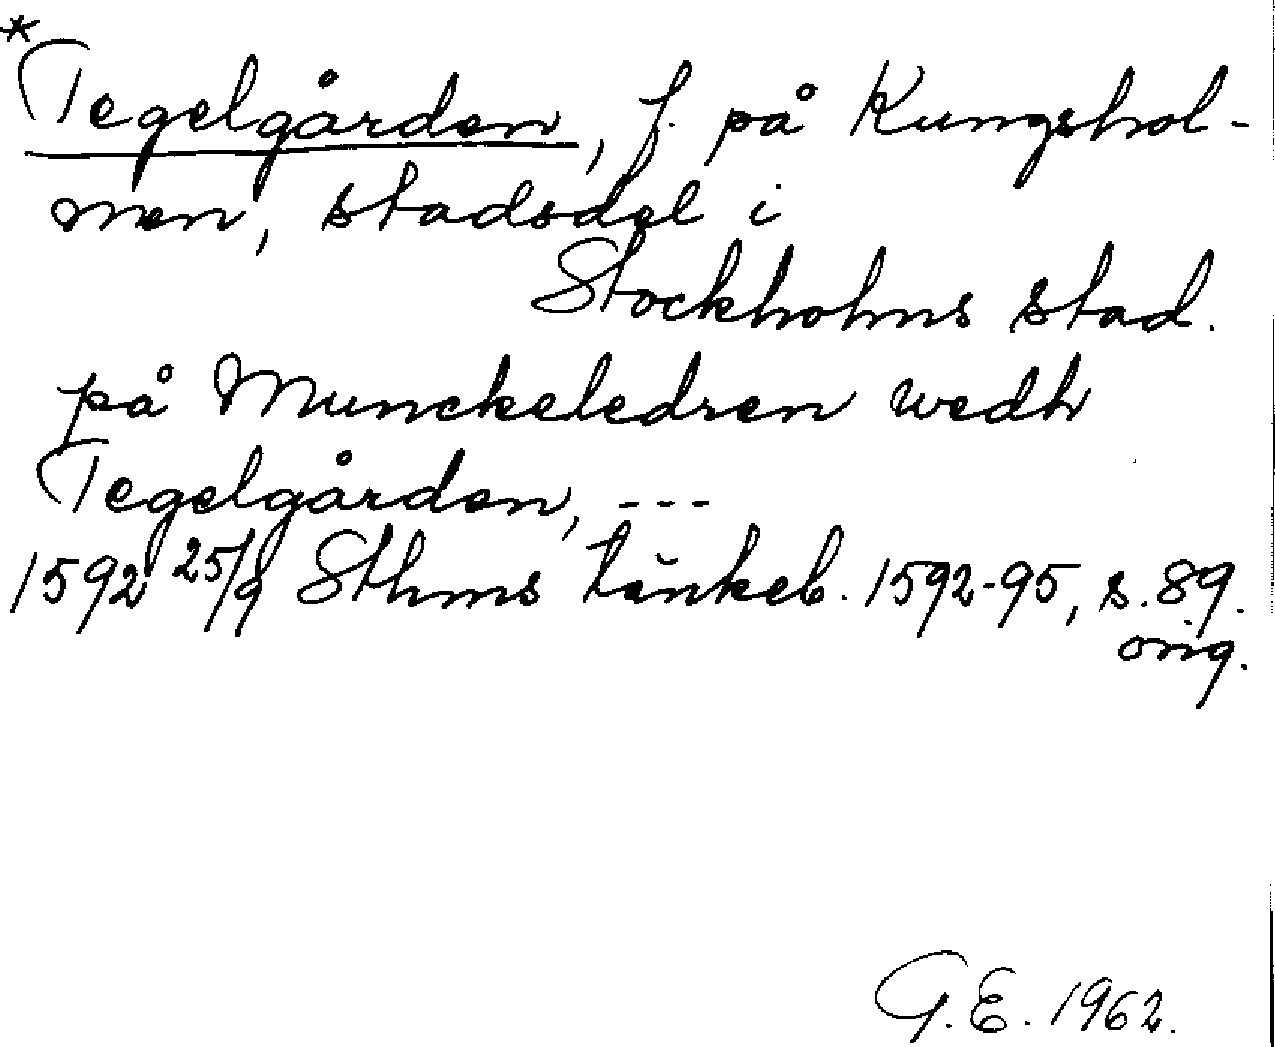 * Tegelgården, f. på Kungshol-
men, stadsdel i
Stockholms stad.
på Munckeledren wedh
Tegelgården, ---
1592 25/9 Sthms tänkeb. 1592-95, s. 89.
orig.
G.E. 1962.